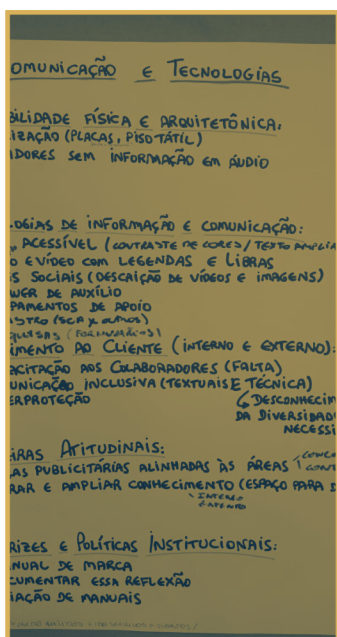 OMUNICAÇÃO E TECNOLOGIAS
BILIDADE FÍSICA E ARQUITETÔNICA:
IZAÇÃO (PLACAS, PISO TÁTIL)
DORES SEM INFORMAÇÃO EM ÁUDIO
OGIAS DE INFORMAÇÃO E COMUNICAÇÃO:
ACESSÍVEL (CONTRASTE DE CORES / TEXTO AMPLIA
O E VÍDEO COM LEGENDAS E LIBRAS
S SOCIAIS (DESCRIÇÃO DE VÍDEOS E IMAGENS)
WER DE AUXÍLIO
PAMENTOS DE APOIO
STRO
QUISAS (FORMULÁRIOS)
IMENTO AO CLIENTE (INTERNO E EXTERNO):
ACITAÇÃO AOS COLABORADORES (FALTA)
UNICAÇÃO INCLUSIVA (TEXTUAIS E TÉCNICA)
ERPROTEÇÃO
DESCONHECIM
DA DIVERSIDAD
NECESSI
IRAS ATITUDINAIS:
AS PUBLICITÁRIAS ALINHADAS ÀS ÁREAS
RAR E AMPLIAR CONHECIMENTO (ESPAÇO PARA D
INTERNO
EXTERNO
RIZES E POLÍTICAS INSTITUCIONAIS:
NUAL DE MARCA
CUMENTAR ESSA REFLEXÃO
IAÇÃO DE MANUAIS